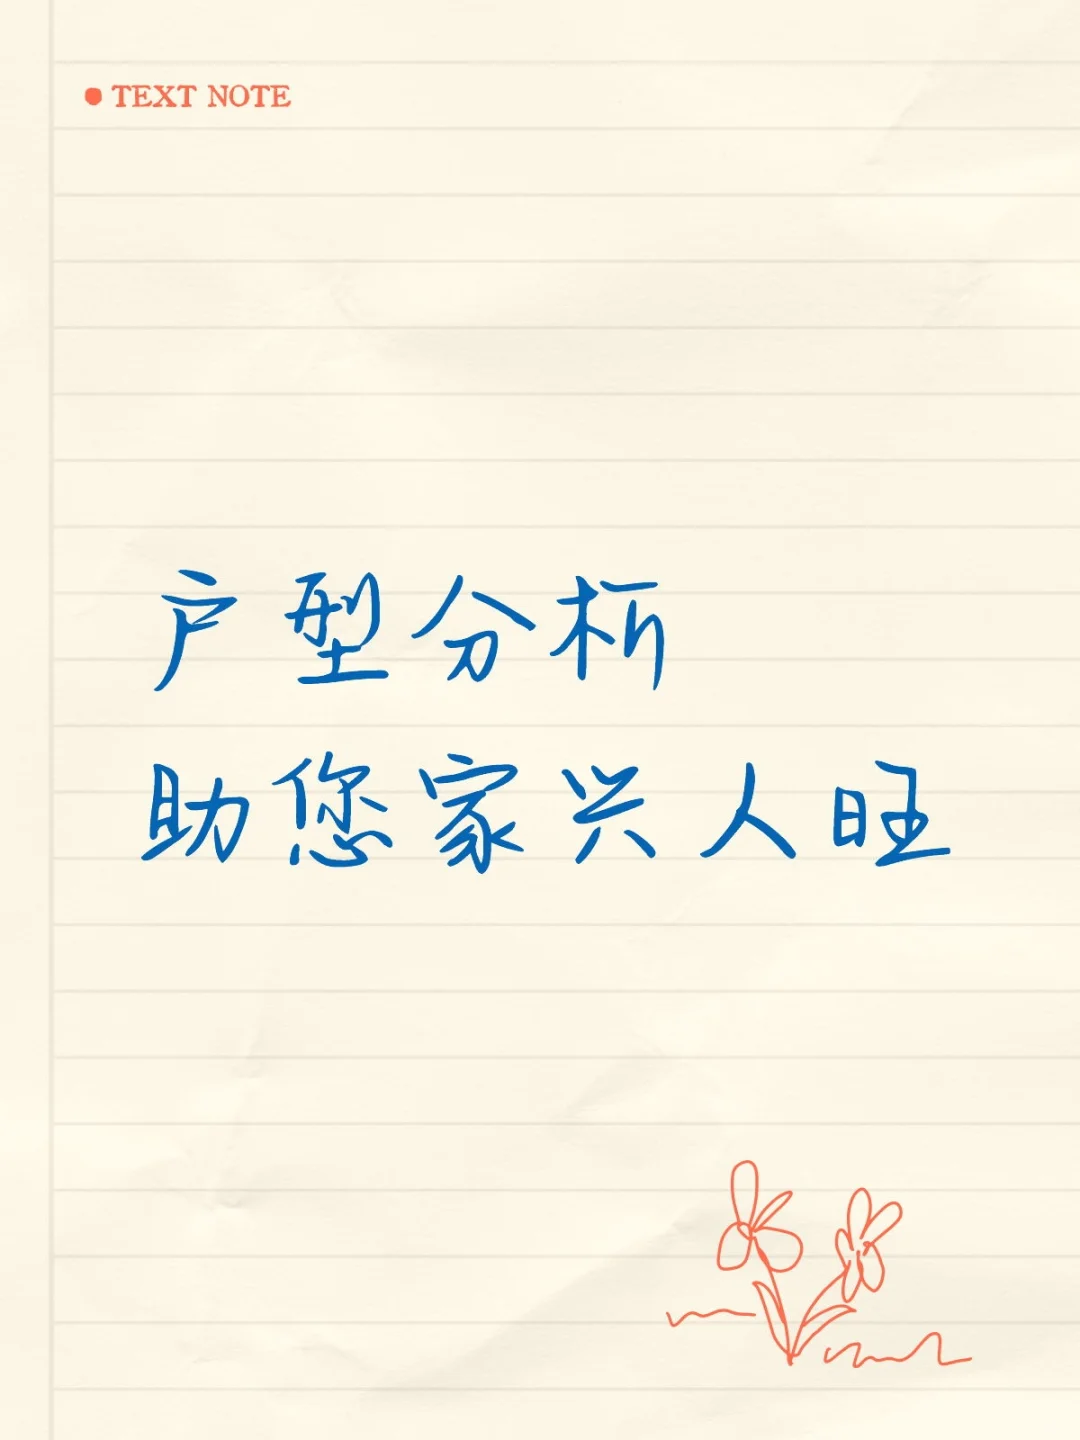 TEXT NOTE
户型分析
助您家兴人旺